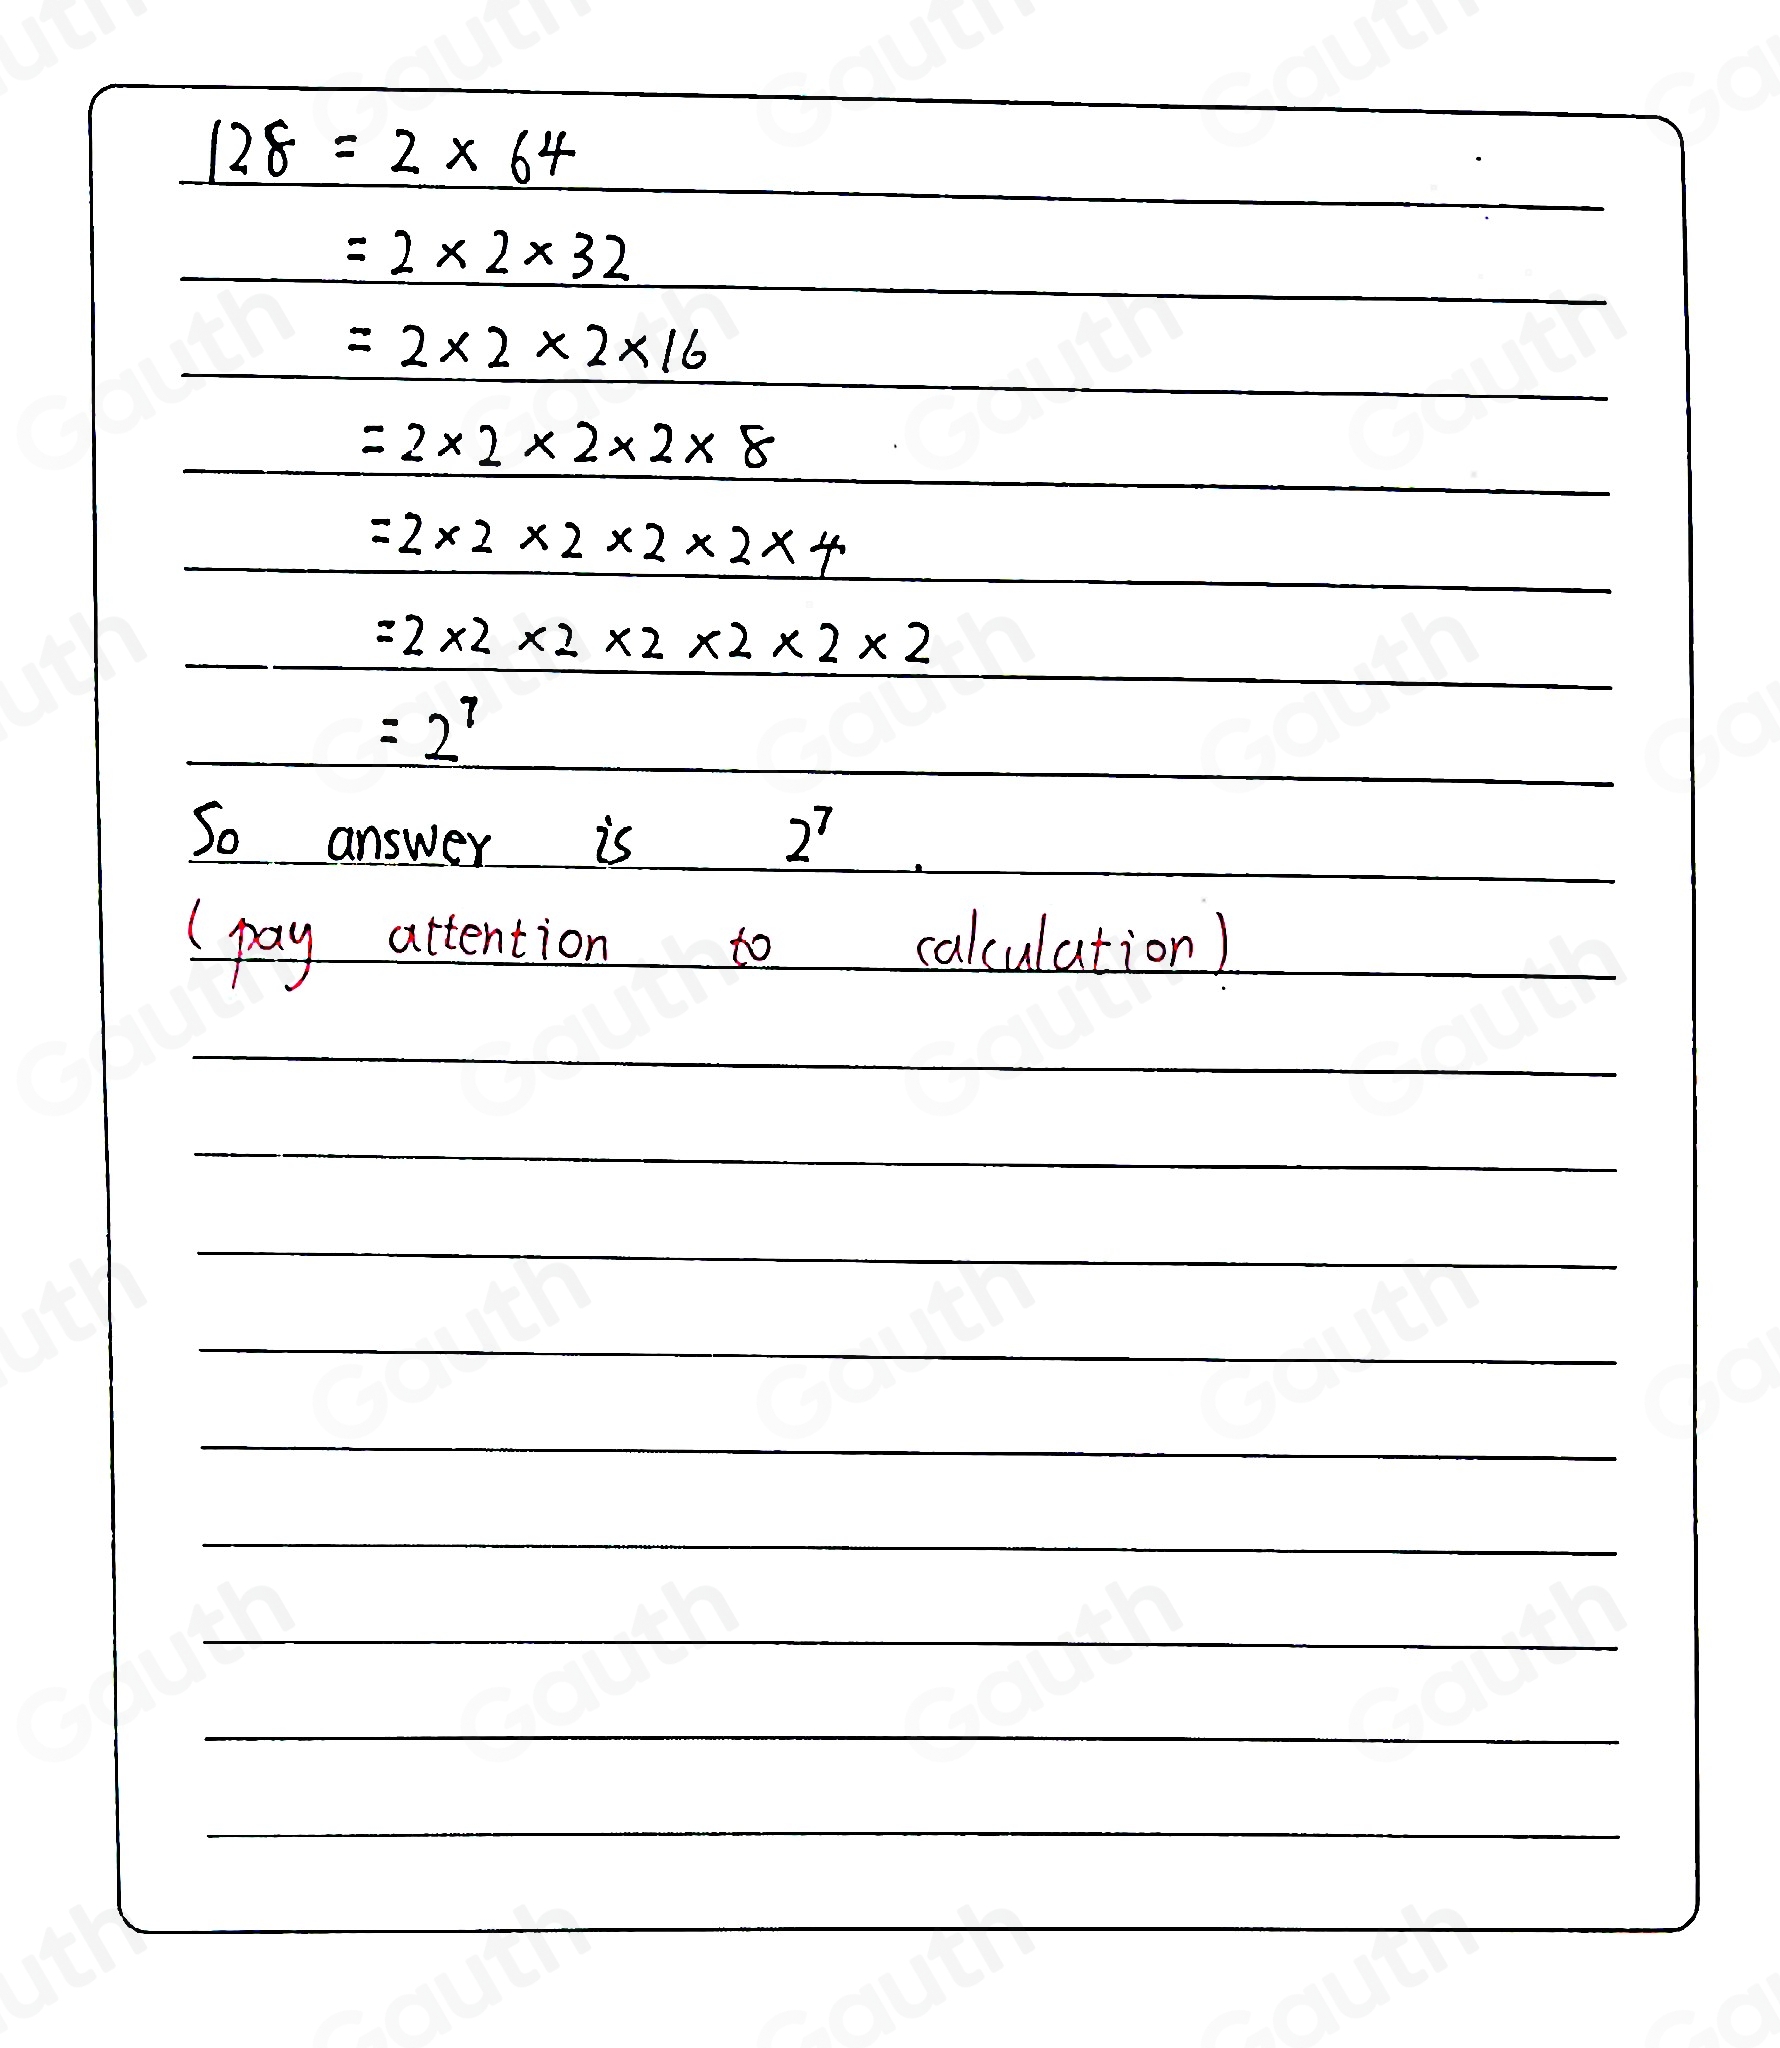 128 = 2 × 64
= 2 × 2 × 32
= 2 × 2 × 2 × 16
= 2 × 2 × 2 × 2 × 8
= 2 × 2 × 2 × 2 × 2 × 4
= 2 × 2 × 2 × 2 × 2 × 2 × 2
= 2⁷
So answer is 2⁷.
(pay attention to calculation)